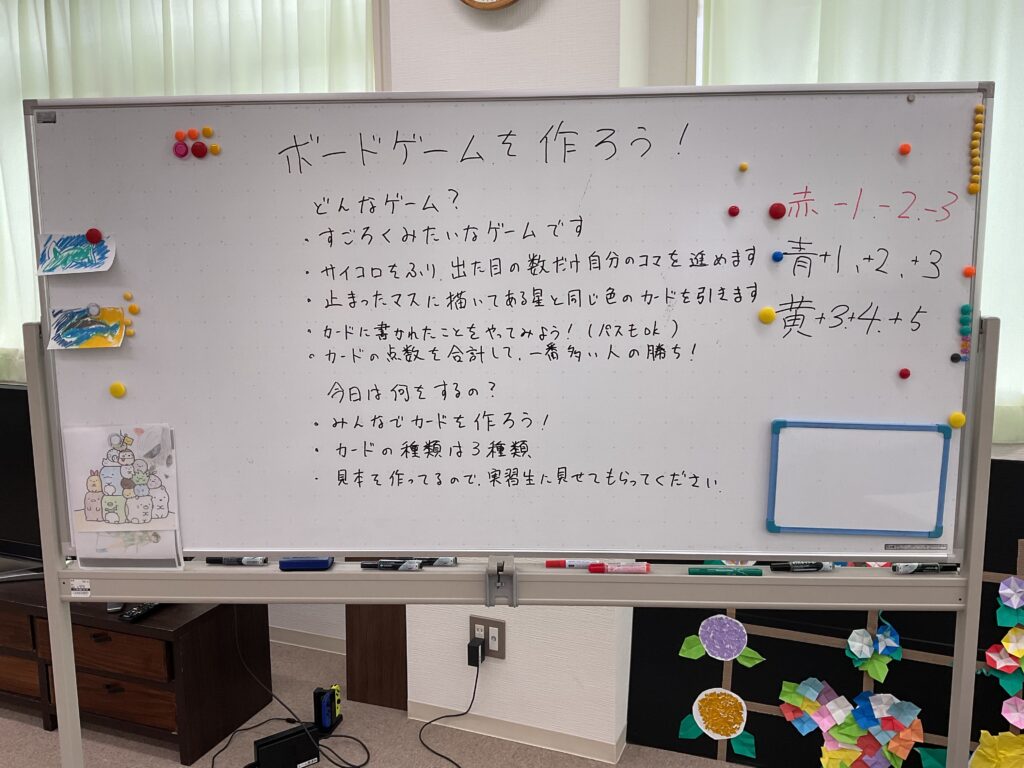 ボードゲームを作ろう!
どんなゲーム?
・すごろくみたいなゲームです
・サイコロをふり、出た目の数だけ自分のコマを進めます
・止まったマスに描いてある星と同じ色のカードを引きます
・カードに書かれたことをやってみよう!(パスもok)
・カードの点数を合計して、一番多い人の勝ち!
今日は何をするの?
・みんなでカードを作ろう!
・カードの種類は3種類
・見本を作ってるので、実習生に見せてもらってください
赤-1.-2.-3
青+1、+2、+3
黄+3+4.+5